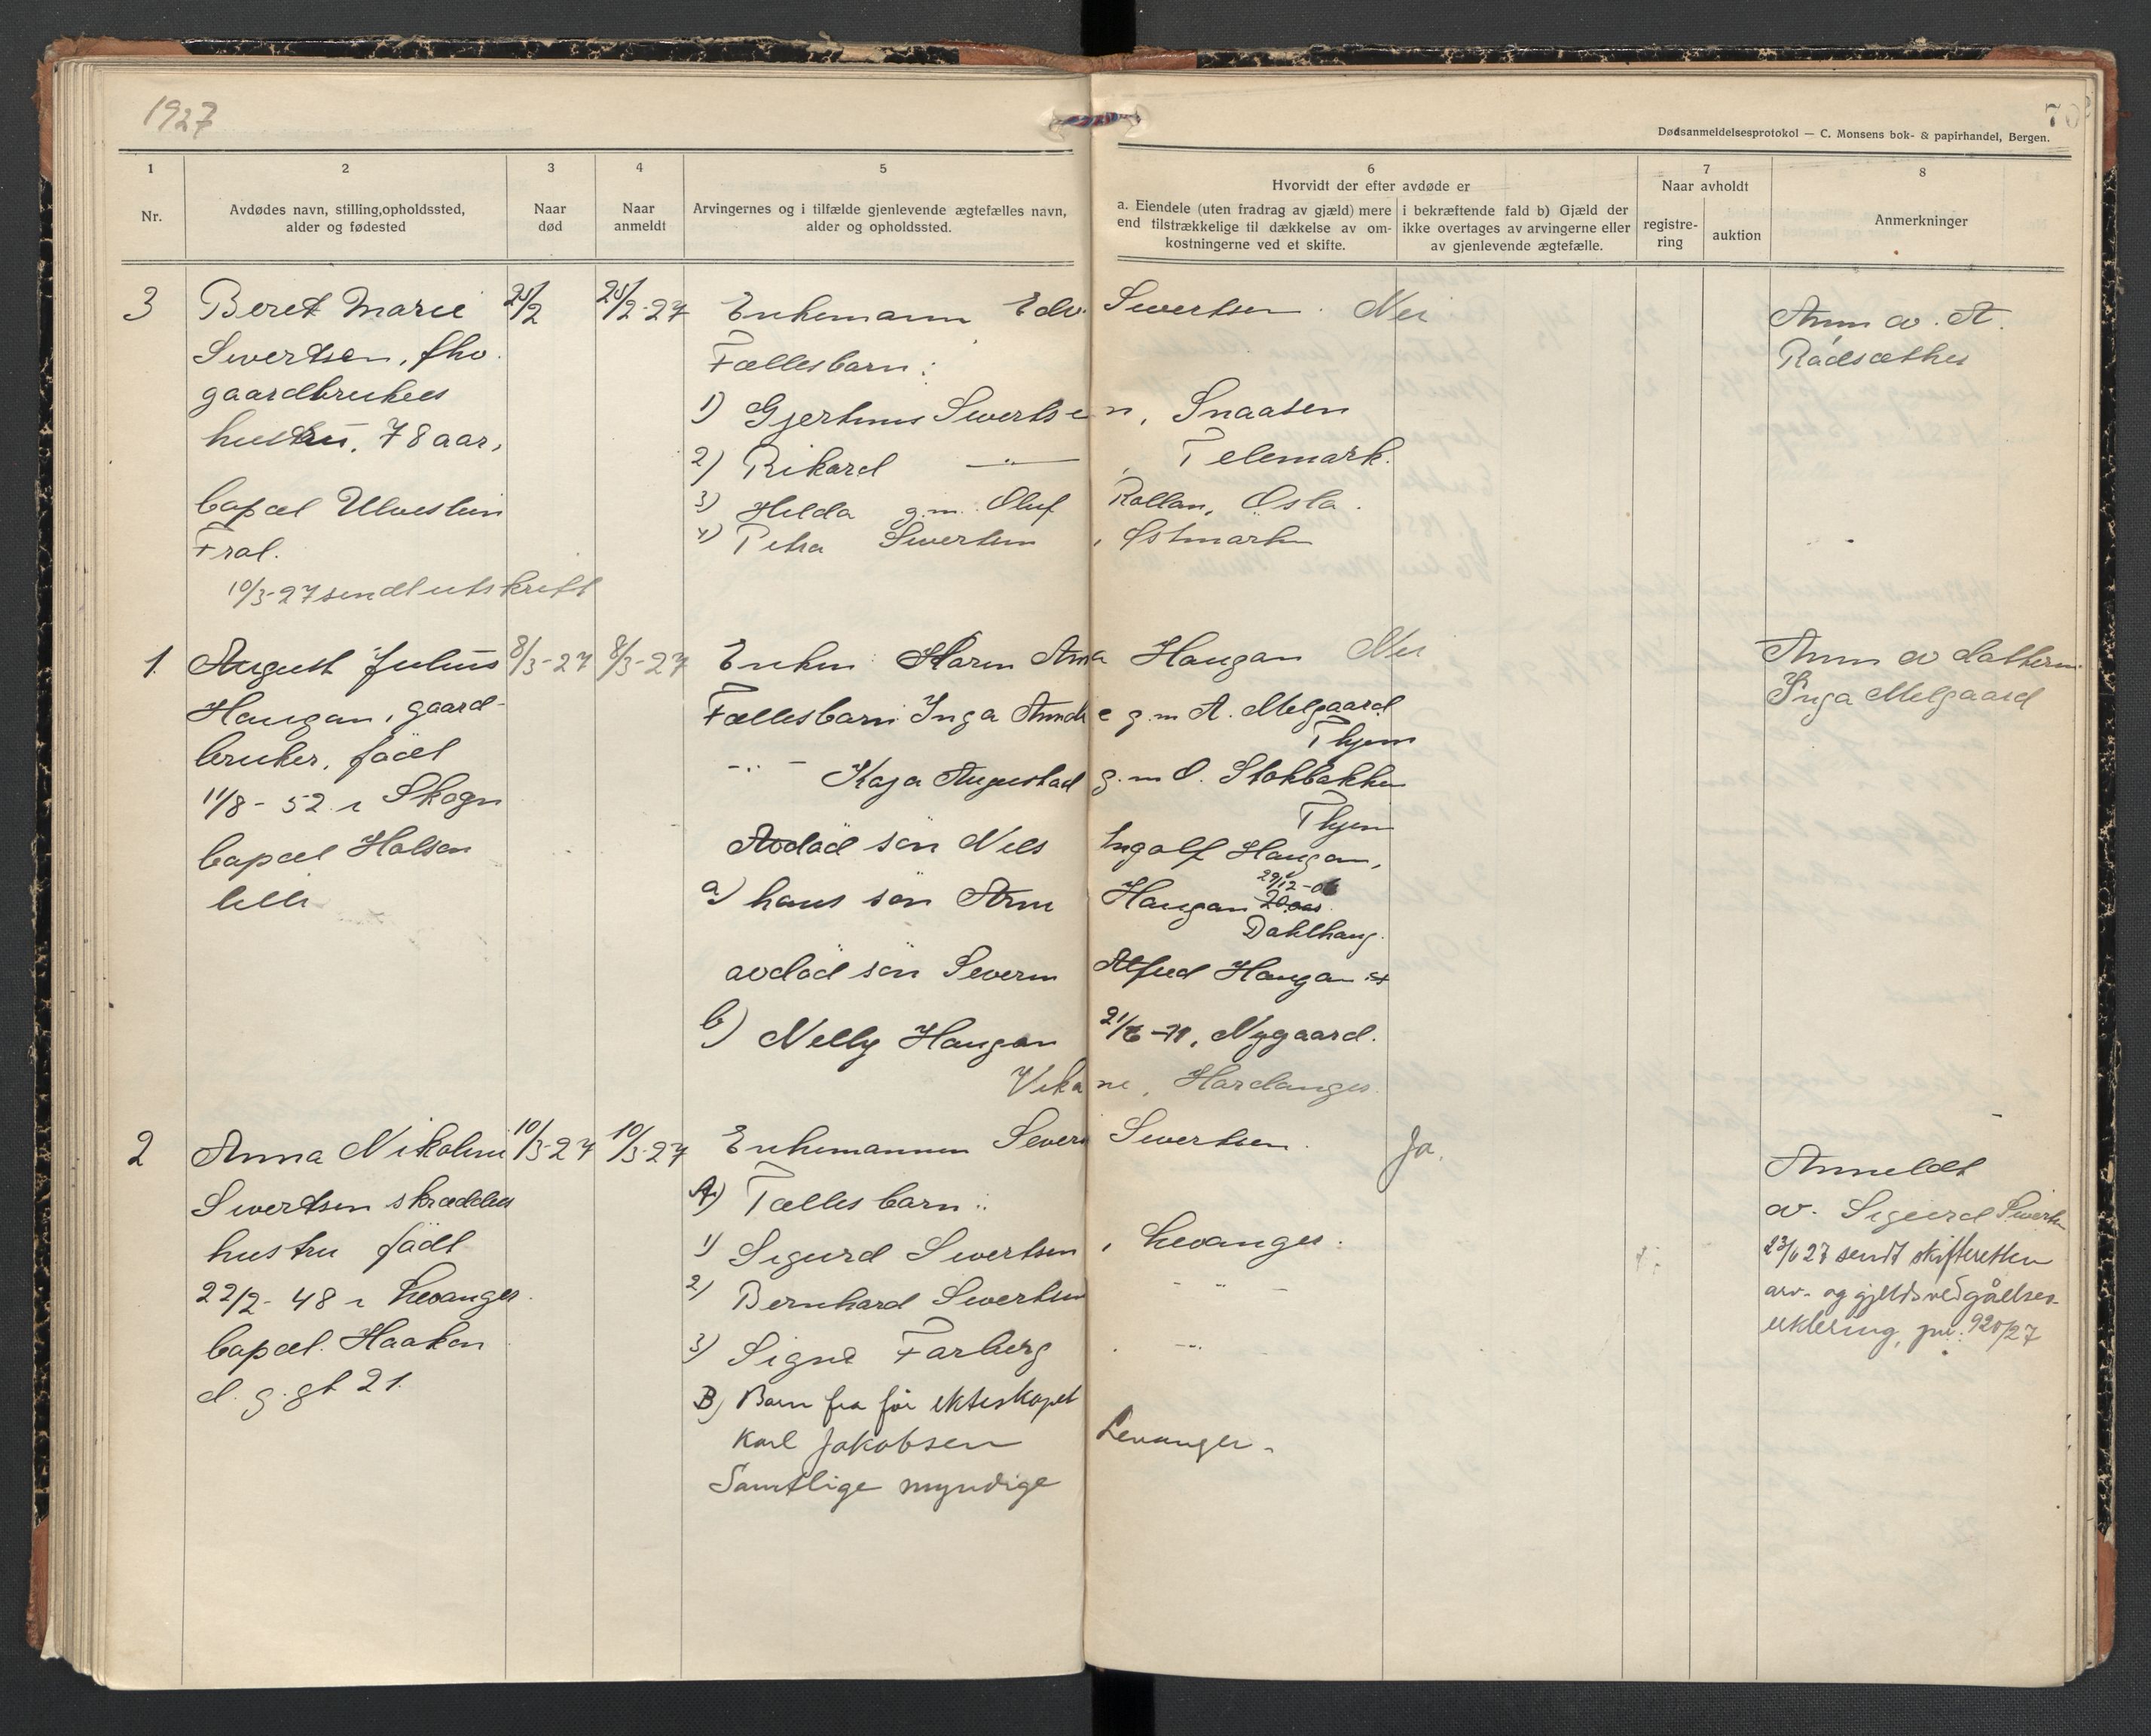 1927
70
Dødsanmeldelsesprotokol — C. Monsens bok- & papirhandel, Bergen.
1 2 3 4 5 6 7 8
Nr.
Avdødes navn, stilling,opholdssted,
alder og fødested
Naar
død
Naar
anmeldt
Arvingernes og i tilfælde gjenlevende ægtefælles navn,
alder og opholdssted.
Hvorvidt der efter avdøde er
a. Eiendele (uten fradrag av gjæld) mere
end tilstrækkelige til dækkelse av om-
kostningerne ved et skifte.
i bekræftende fald b) Gjæld der
ikke overtages av arvingerne eller
av gjenlevende ægtefælle.
Naar avholdt
registre-
ring
auktion
Anmerkninger
3
Beret Marie
Sivertsen, fhv.
gaardbrukers
hustru, 78 aar,
bopæl Ulvestein
Frol.
10/3-27 sendt utskrift
Enkemann Edv. Sivertsen. Nei
Fællesbarn:
1) Gjertinus Sivertsen, Snaasen
2) Rikard —"— , Telemark.
3) Hilda g.m. Oluf Rollan, Oslo.
4) Petra Sivertsen, Østmarken
Anm av. A.
Rådsæther
1.
August Julius
Haugan, gaard-
bruker, født
11/8-52 i Skogn
bopæl Holsan
lille
8/3-27
8/3-27
Enken: Karen Anna Haugan Nei
Fællesbarn: Inga Amalie g.m A. Melgaard
Thjem
-"- Kaja Augusta g.m O. Stokbakken
Thjem
Avdød søn Nils Ingolf Haugan,
a) hans søn Arne Haugan 20 aar
29/12-06
Dahlhaug.
avdød søn Severin Alfred Haugan
b) Nelly Haugan 21/6-11, Nygaard.
Vikane, Hardanger.
Anm av datteren
Inga Melgaard
2
Anna Nikoline
Sivertsen skrædders
hustru født
22/2-48 i Levanger.
bopæl. Haakon
d. g. gt 21.
10/3-27
10/3-27
Enkemannen Severin Sivertsen. Ja.
A) Fælles barn:
1) Sigurd Sivertsen, Levanger.
2) Bernhard Sivertsen -"-
3) Signe Farberg -"-
B) Barn fra før ekteskapet
Karl Jakobsen Levanger.
Samtlige myndige
Anmeldt
av. Sigurd Sivertsen
sendt skifteretten
arv- og gjeldsvedgåelses-
erklering, jnr. 920/27